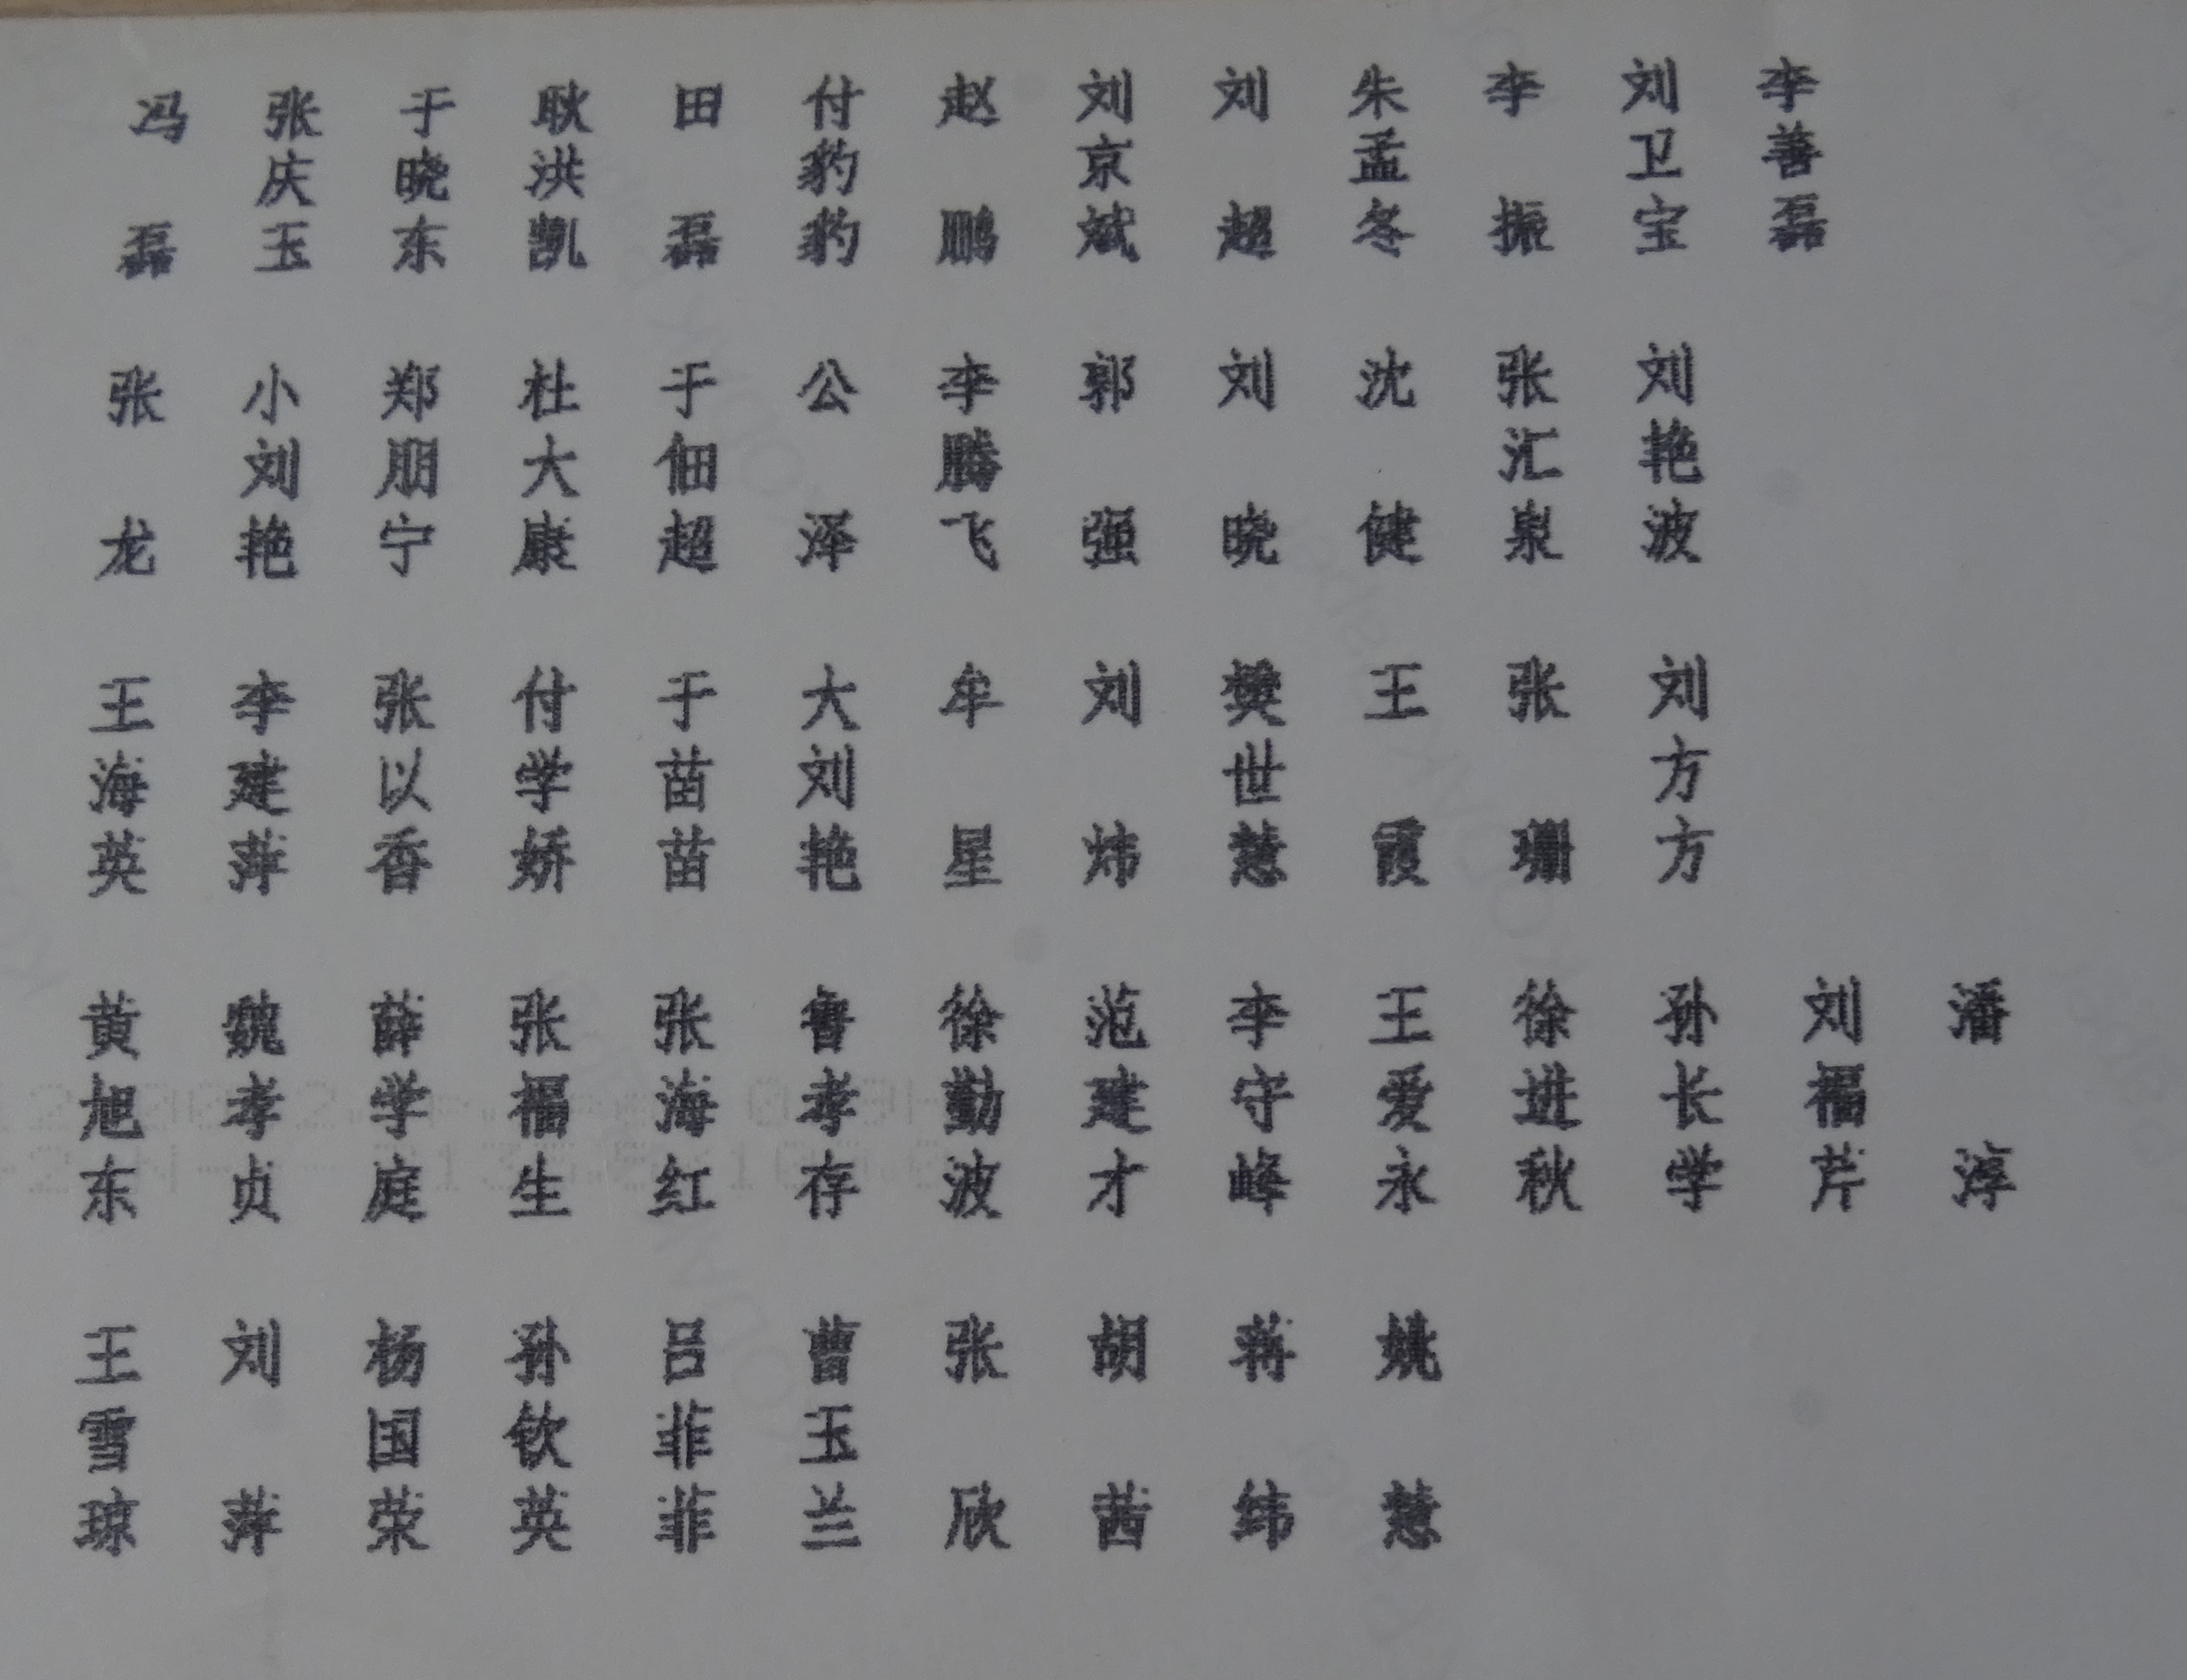 冯磊 张庆玉 于晓东 耿洪凯 田磊 付豹豹 赵鹏 刘京斌 刘超 朱孟冬 李振 刘卫宝 李善磊
张龙 小刘艳 郑朋宁 杜大康 于佃超 公泽 李腾飞 郭强 刘晓 沈健 张汇泉 刘艳波
王海英 李建萍 张以香 付学娇 于苗苗 大刘艳 牟星 刘炜 樊世慧 王霞 张珊 刘方方
黄旭东 魏孝贞 薛学庭 张福生 张海红 鲁孝存 徐勤波 范建才 李守峰 王爱永 徐进秋 孙长学 刘福芹 潘淳
王雪琼 刘萍 杨国荣 孙钦英 吕菲菲 曹玉兰 张欣 胡茜 蒋纬 姚慧